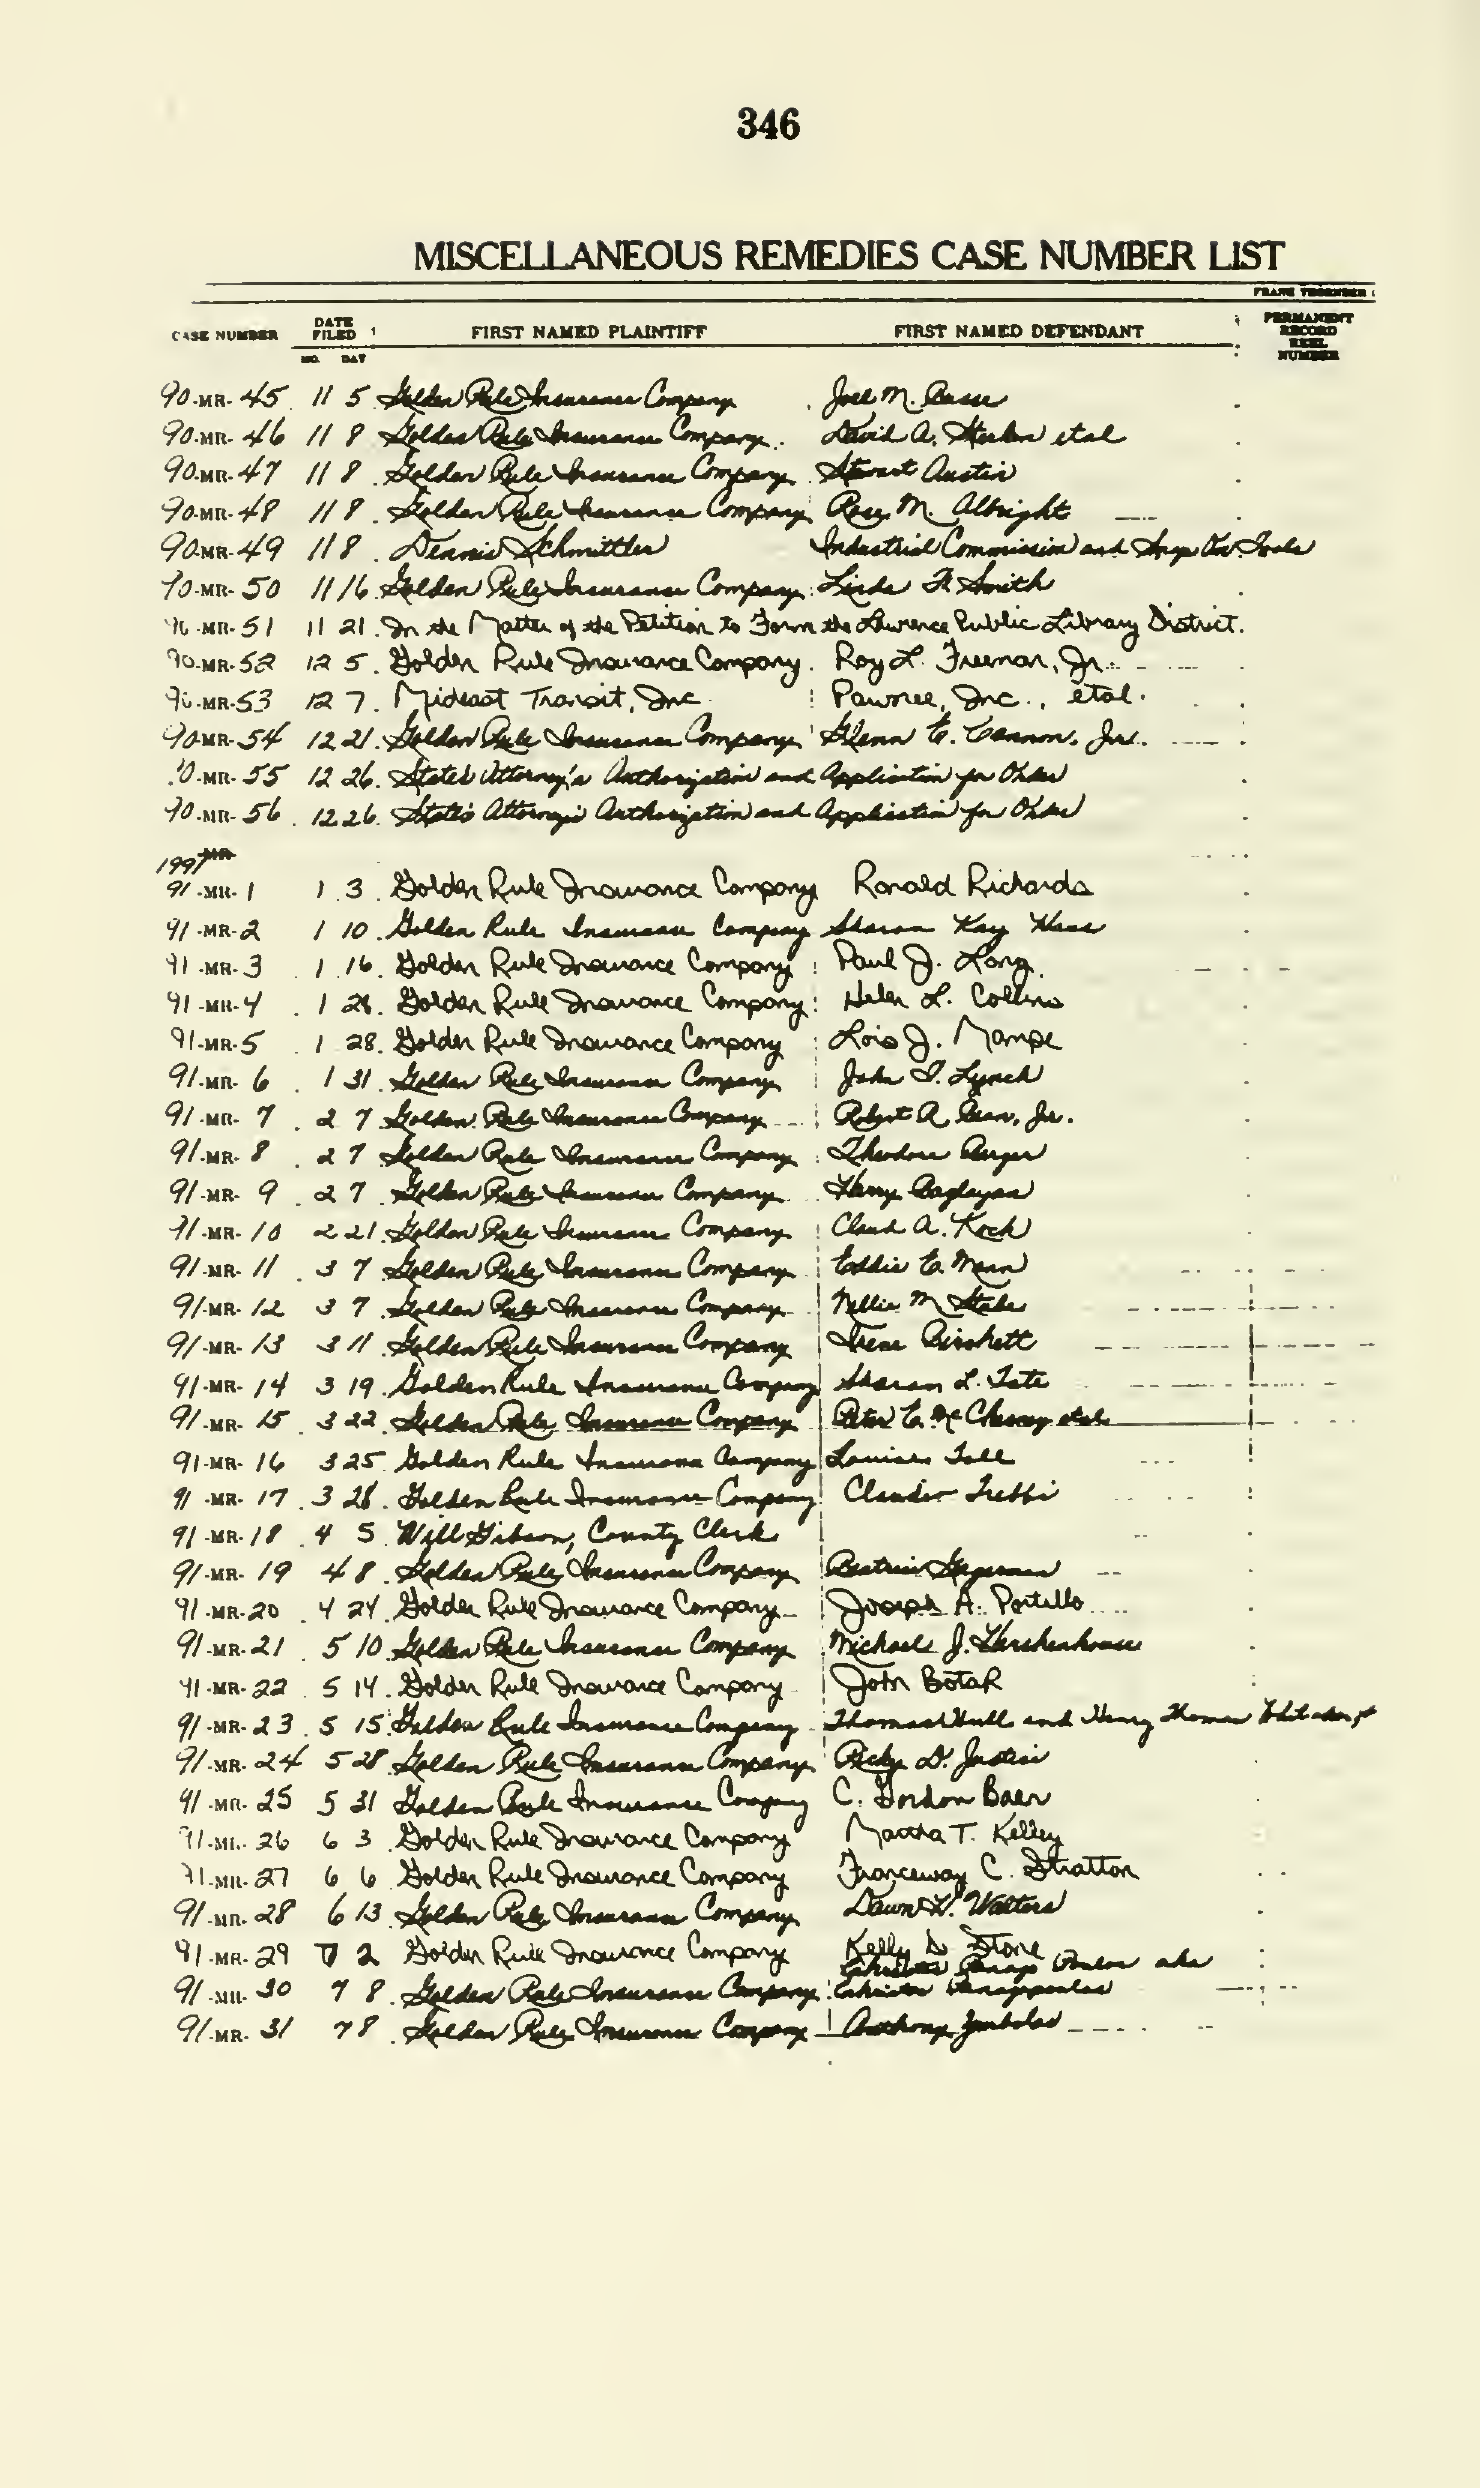 346
MISCELLANEOUS REMEDIES CASE NUMBER LIST
CASE NUMBER DATE FILED FIRST NAMED PLAINTIFF FIRST NAMED DEFENDANT PERMANENT RECORD REEL NUMBER
MO. DAY
90-MR-45 11 5 Golden Rule Insurance Company Joel M.
90-MR-46 11 8 Golden Rule Insurance Company. David A. et al
90-MR-47 11 8 Golden Rule Insurance Company Stewart Austin
90-MR-48 11 8 Golden Rule Insurance Company Rose M. Albright
90-MR-49 11 8 Dennis Schmittler Industrial Commission and Snap On Tools
90-MR-50 11 16 Golden Rule Insurance Company Linda F. Smith
90-MR-51 11 21 In the Matter of the Petition to Form the Lawrence Public Library District.
90-MR-52 12 5 Golden Rule Insurance Company. Roy L. Freeman, Jr.
90-MR-53 12 7 Mideast Transit, Inc Pawnee, Inc., etal.
90-MR-54 12 21 Golden Rule Insurance Company Glenn E. Cannon, Jr.
90-MR-55 12 26 State's Attorney's Authorization and Application for Order
90-MR-56 12 26 State's Attorney's Authorization and Application for Order
1991 MR
91-MR-1 1 3 Golden Rule Insurance Company Ronald Richards
91-MR-2 1 10 Golden Rule Insurance Company Sharon Kay Hass
91-MR-3 1 16 Golden Rule Insurance Company Paul J. Long
91-MR-4 1 28 Golden Rule Insurance Company Helen L. Collins
91-MR-5 1 28 Golden Rule Insurance Company Lois J. Mampe
91-MR-6 1 31 Golden Rule Insurance Company John T. Lynch
91-MR-7 2 7 Golden Rule Insurance Company Robert A. Jr.
91-MR-8 2 7 Golden Rule Insurance Company Theodore
91-MR-9 2 7 Golden Rule Insurance Company Harry
91-MR-10 2 21 Golden Rule Insurance Company Claud A. Koch
91-MR-11 3 7 Golden Rule Insurance Company Eddie E. Mann
91-MR-12 3 7 Golden Rule Insurance Company Nellie M.
91-MR-13 3 11 Golden Rule Insurance Company Irene Birchett
91-MR-14 3 19 Golden Rule Insurance Company Sharon L. Tate
91-MR-15 3 22 Golden Rule Insurance Company Peter E. McChesney etal
91-MR-16 3 25 Golden Rule Insurance Company Louise Toll
91-MR-17 3 28 Golden Rule Insurance Company Claudio Trebbi
91-MR-18 4 5 Will Gibson, County Clerk
91-MR-19 4 8 Golden Rule Insurance Company Beatrice Hagerman
91-MR-20 4 24 Golden Rule Insurance Company Joseph A. Portillo
91-MR-21 5 10 Golden Rule Insurance Company Michael J. Hershenhouse
91-MR-22 5 14 Golden Rule Insurance Company John Botak
91-MR-23 5 15 Golden Rule Insurance Company Thomas Hull and Henry Thomas
91-MR-24 5 28 Golden Rule Insurance Company Ricky D. Justin
91-MR-25 5 31 Golden Rule Insurance Company C. Gordon Baer
91-MR-26 6 3 Golden Rule Insurance Company Martha T. Kelley
91-MR-27 6 6 Golden Rule Insurance Company Franceway C. Stratton
91-MR-28 6 13 Golden Rule Insurance Company Dawn L. Walters
91-MR-29 7 2 Golden Rule Insurance Company Kelly D. Stone
aka
91-MR-30 7 8 Golden Rule Insurance Company
91-MR-31 7 8 Golden Rule Insurance Company Anthony